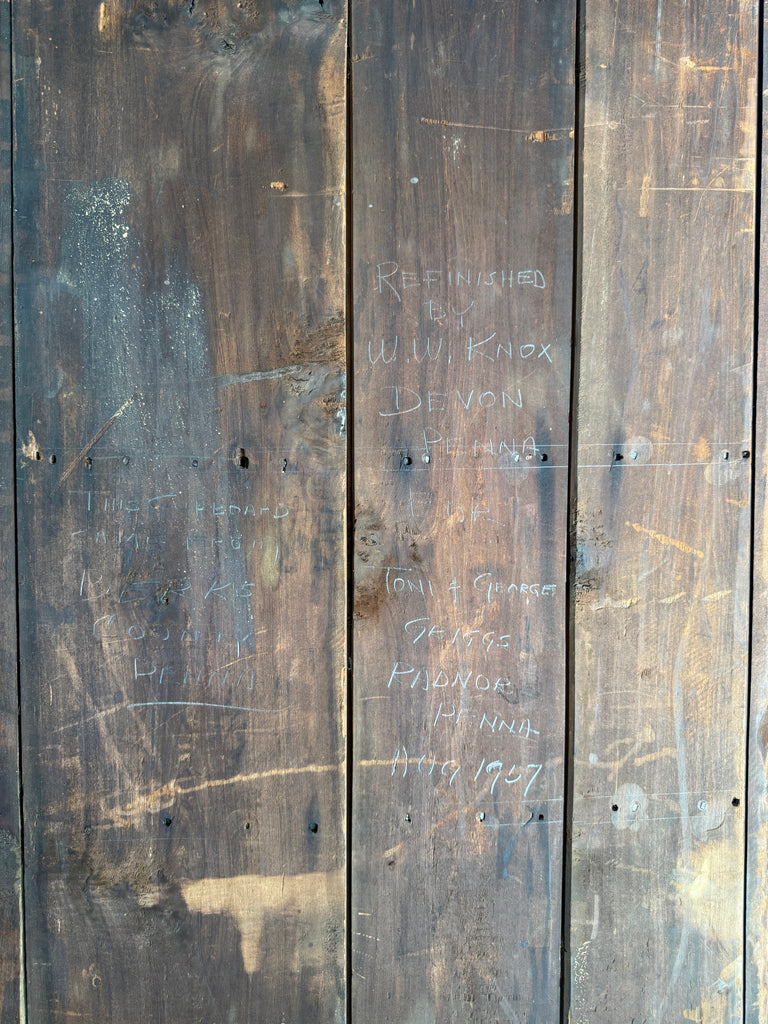 REFINISHED
BY
W.W. KNOX
DEVON
PENNA
FOR
TONI & GEORGE
GRIGGS
RADNOR
PENNA
AUG 1957
THIS
CAME FROM
BERKS
COUNTY
PENNA